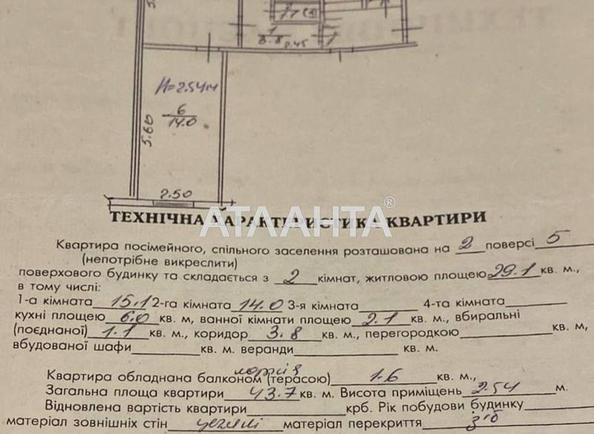 1.1 (4)
1
3.8 2.45 1
H=2.54м
6
14.0
5.60
2.50
ТЕХНІЧНА ХАРАКТЕРИСТИКА КВАРТИРИ
АТЛАНТА®
Квартира посімейного, спільного заселення розташована на 2 поверсі 5
(непотрібне викреслити)
поверхового будинку та складається з 2 кімнат, житловою площею 29.1 кв. м.,
в тому числі:
1-а кімната 15.1 2-га кімната 14.0 3-я кімната 4-та кімната
кухні площею 6.0 кв. м, ванної кімнати площею 2.1 кв. м., вбиральні
(поєднаної) 1.1 кв. м., коридор 3.8 кв. м., перегородкою кв. м,
вбудованої шафи кв. м. веранди кв. м.
лоджія
Квартира обладнана балконом (терасою) 1.6 кв. м.,
Загальна площа квартири 43.7 кв. м. Висота приміщень 2.54 м.
Відновлена вартість квартири крб. Рік побудови будинку
матеріал зовнішніх стін цегляні матеріал перекриття з/б